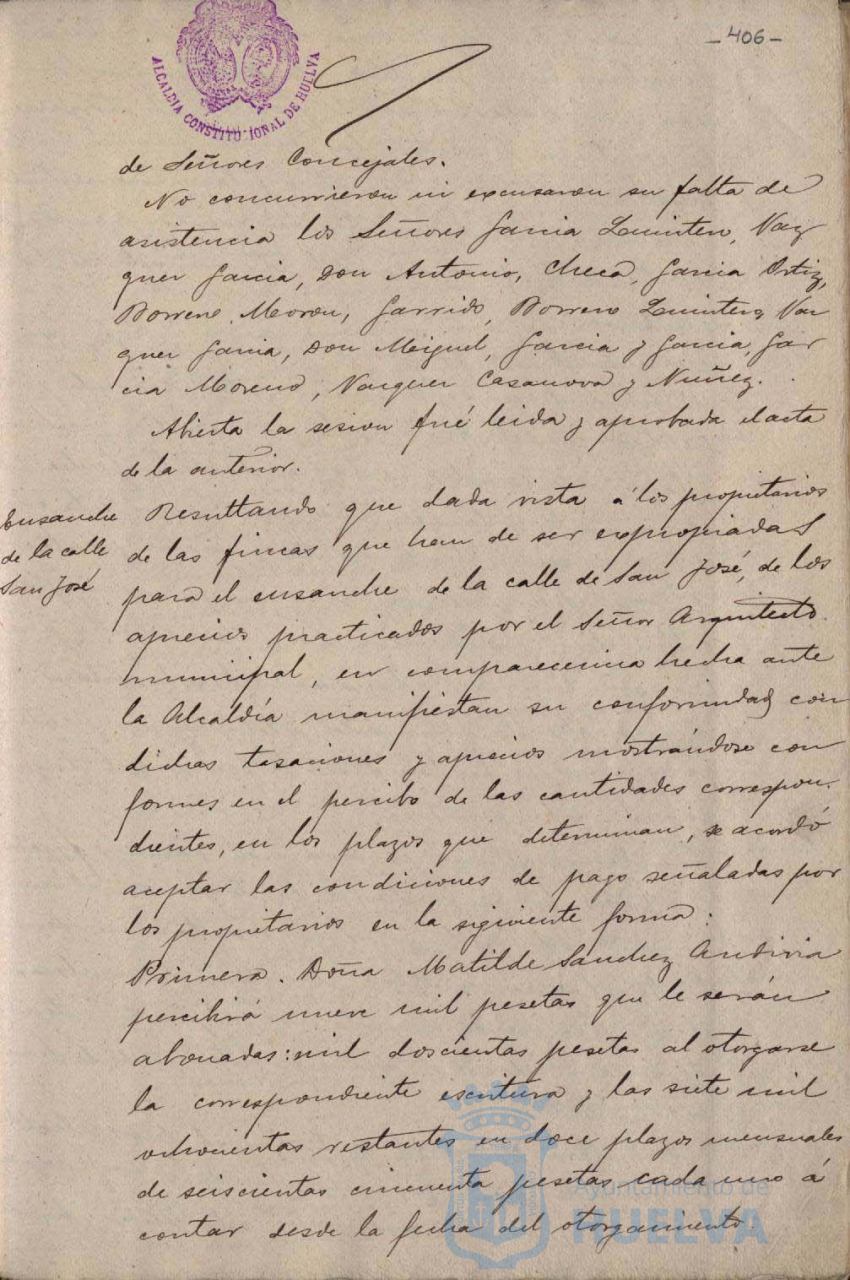 -406-
ALCALDIA CONSTITUCIONAL DE HUELVA
de Señores Concejales.
No concurrieron ni excusaron su falta de
asistencia los Señores Garcia Quintero, Vaz
quez Garcia, Don Antonio, Checa, Garcia Ortiz,
Borrero Moron, Garrido, Borrero Quintero, Vaz
quez Garcia, Don Miguel, Garcia y Garcia, Gar
cia Moreno, Vazquez Casanova y Nuñez.
Abierta la sesion fué leida y aprobada el acta
de la anterior.
Ensanche
de la calle
San José
Resultando que dada vista á los propietarios
de las fincas que han de ser expropiadas
para el ensanche de la calle de San José, de los
aprecios practicados por el Señor Arquitecto
municipal, en comparecencia hecha ante
la Alcaldía manifiestan su conformidad con
dichas tasaciones y aprecios mostrándose con
formes en el percibo de las cantidades correspon-
dientes, en los plazos que determinan, se acordó
aceptar las condiciones de pago señaladas por
los propietarios en la siguiente forma:
Primera. Doña Matilde Sanchez Andivia
percibirá nueve mil pesetas que le serán
abonadas: mil doscientas pesetas al otorgarse
la correspondiente escritura y las siete mil
ochocientas restantes en doce plazos mensuales
de seiscientas cincuenta pesetas cada uno á
contar desde la fecha del otorgamiento.
Ayuntamiento de
HUELVA